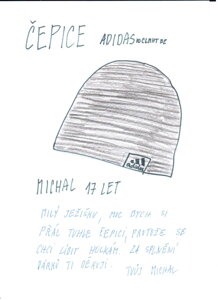 ČEPICE ADIDAS
adidas
MICHAL 17 LET
MILÝ JEŽÍŠKU, MOC BYCH SI
PŘÁL TUHLE ČEPICI, PROTOŽE SE
CHCI LÍBIT HOLKÁM. ZA SPLNĚNÍ
DÁRKŮ TI DĚKUJI.
TVŮJ MICHAL